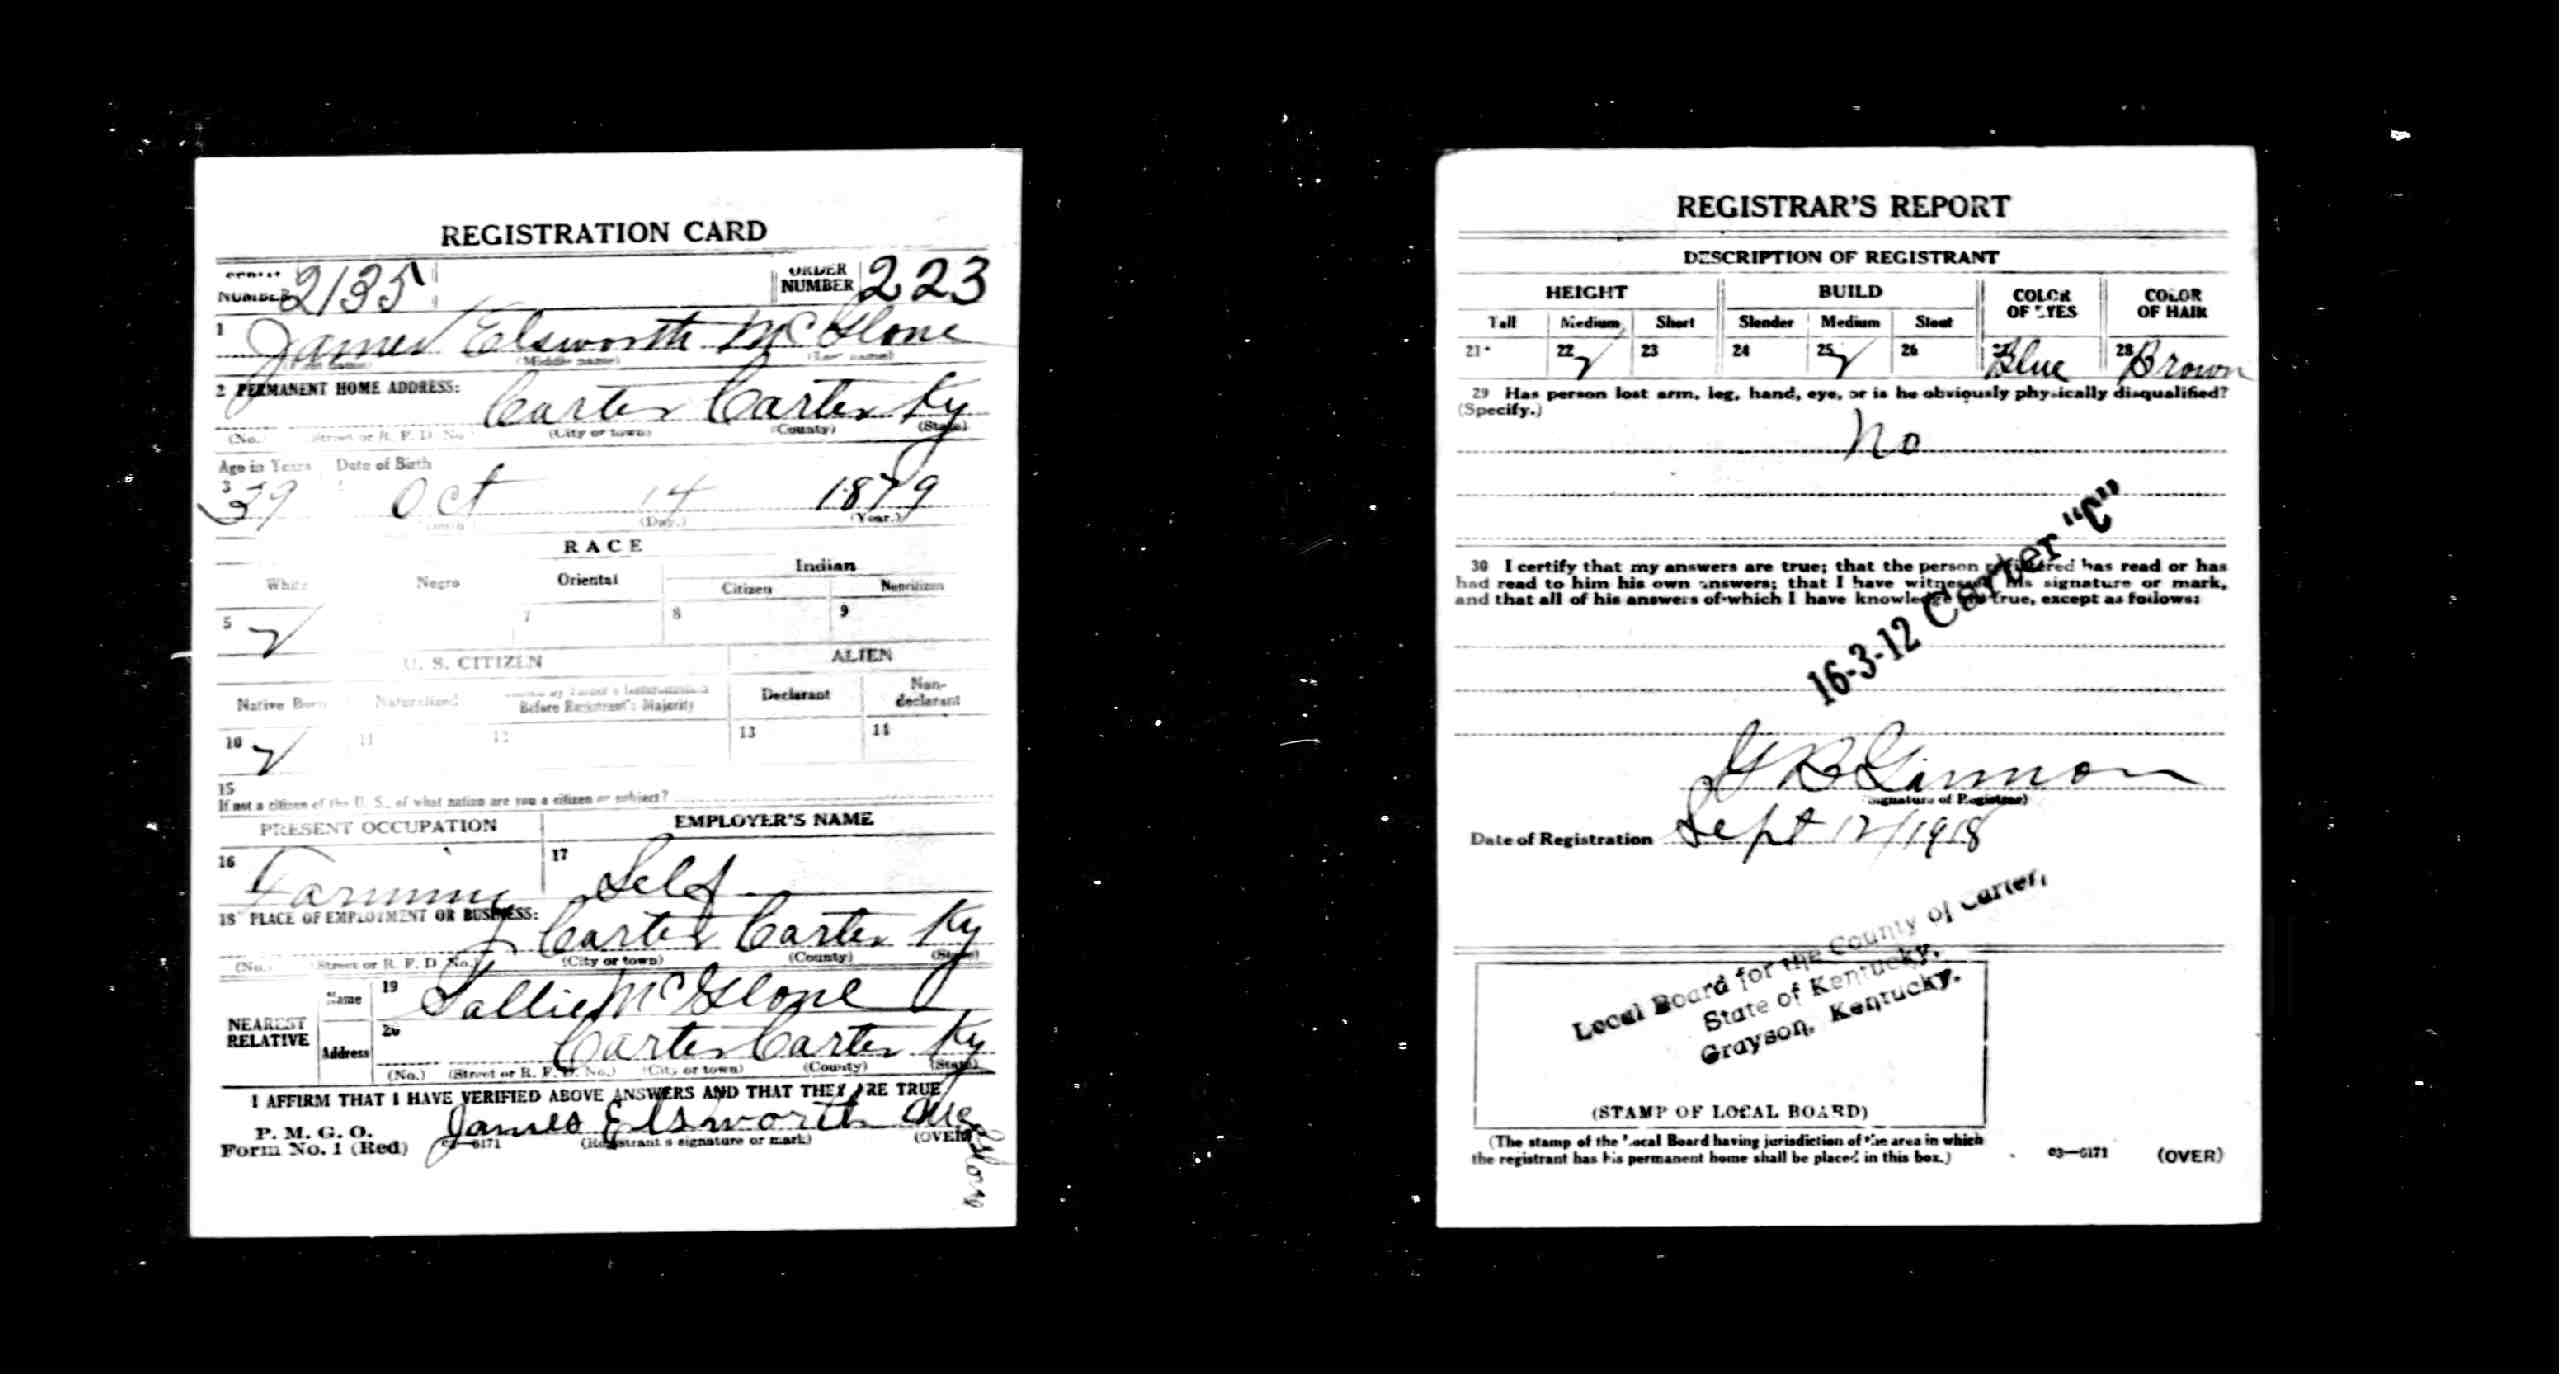 REGISTRATION CARD
SERIAL NUMBER 2135 ORDER NUMBER 223
1 James Elsworth McGlone
(First name) (Middle name) (Last name)
2 PERMANENT HOME ADDRESS:
Carter Carter Ky
(No.) (Street or R. F. D. No.) (City or town) (County) (State)
Age in Years Date of Birth
3 39 Oct 14 1879
(Month.) (Day.) (Year.)
RACE
White Negro Oriental Indian
Citizen Noncitizen
5 ✓ 7 8 9
U. S. CITIZEN ALIEN
Native Born Naturalized Before Registrant's Majority Declarant Non-declarant
10 ✓ 11 12 13 14
15
If not a citizen of the U. S., of what nation are you a citizen or subject?
PRESENT OCCUPATION EMPLOYER'S NAME
16 Farming 17 Self
18 PLACE OF EMPLOYMENT OR BUSINESS:
Carter Carter Ky
(No.) (Street or R. F. D. No.) (City or town) (County) (State)
NEAREST RELATIVE
Name 19 Sallie McGlone
Address 20 Carter Carter Ky
(No.) (Street or R. F. D. No.) (City or town) (County) (State)
I AFFIRM THAT I HAVE VERIFIED ABOVE ANSWERS AND THAT THEY ARE TRUE
P. M. G. O.
Form No. 1 (Red) James Elsworth McGlone
03—6171 (Registrant's signature or mark) (OVER)
REGISTRAR'S REPORT
DESCRIPTION OF REGISTRANT
HEIGHT BUILD COLOR OF EYES COLOR OF HAIR
Tall Medium Short Slender Medium Stout
21 22 ✓ 23 24 25 ✓ 26 27 Blue 28 Brown
29 Has person lost arm, leg, hand, eye, or is he obviously physically disqualified?
(Specify.)
No
30 I certify that my answers are true; that the person registered has read or has
had read to him his own answers; that I have witnessed his signature or mark,
and that all of his answers of which I have knowledge are true, except as follows:
16-3-12 Carter "C"
G B
(Signature of Registrar)
Date of Registration Sept 12/1918
Local Board for the County of Carter,
State of Kentucky,
Grayson, Kentucky.
(STAMP OF LOCAL BOARD)
(The stamp of the Local Board having jurisdiction of the area in which
the registrant has his permanent home shall be placed in this box.)
03—6171 (OVER)